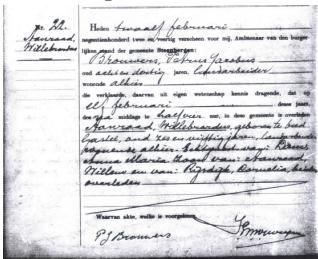 No. 22.
Aanraad,
Willebrordus
Heden twaalf februari
negentienhonderd twee en veertig verscheen voor mij, Ambtenaar van den burger-
lijken stand der gemeente Steenbergen:
Brouwers, Petrus Jacobus
oud achtendertig jaren, landarbeider
wonende alhier
die verklaarde, daarvan uit eigen wetenschap kennis dragende, dat op
elf februari dezes jaars,
des na middags te half vier ure, in deze gemeente is overleden
Aanraad, Willebrordus, geboren te Oud
Gastel, oud zes en vijftig jaren, landarbeider
wonende alhier. Echtgenoot van:
Anna Maria. Zoon van: Aanraad,
Willem en van: Rijsdijk, Cornelia, beiden
overleden
Waarvan akte, welke is voorgelezen.
PJ Brouwers